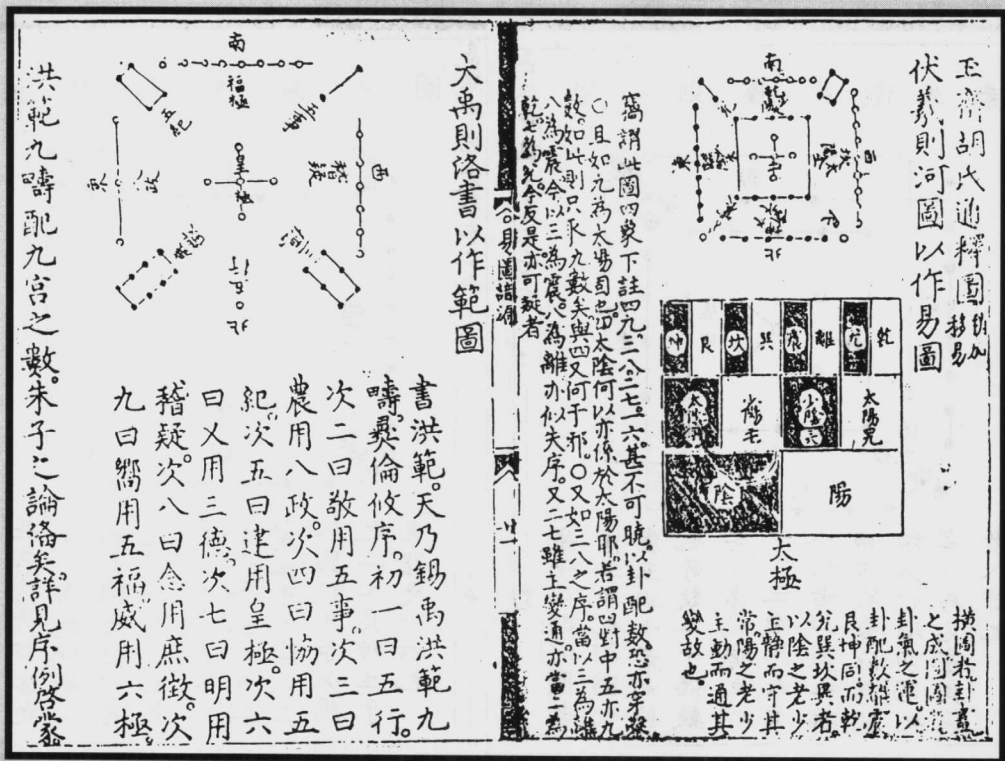 玉齋胡氏通釋圖
移易
伏羲則河圖以作易圖
南
西
北
乾
兌
離
震
巽
坎
艮
坤
太陽
少陰
少陽
太陰
陽
陰
太極
橫圖者卦畫
之成圓圖
卦氣之運以
卦配數離震
艮坤同而乾
兌巽坎異者
以陰之老少
主靜而守其
常陽之老少
主動而通其
變故也
謂此圖四象下註四九三八二七一六甚不可曉以卦配數恐亦穿鑿
〇且如九為太陽固也四太陰何以亦係於太陽耶若謂四對中五亦九
數如此則只取九數矣與四又何干邪〇又如三八之序當以三為離
八為震今以三為震八為離亦似失序又二七雖主變通亦當二為
乾七為兌今反是亦可疑者
大禹則洛書以作範圖
南
福極
五事
五紀
西
稽疑
皇極
八政
東
北
書洪範天乃錫禹洪範九
疇彛倫攸序初一曰五行
次二曰敬用五事次三曰
農用八政次四曰協用五
紀次五曰建用皇極次六
曰乂用三德次七曰明用
稽疑次八曰念用庶徵次
九曰嚮用五福威用六極
洪範九疇配九宮之數朱子之論備矣詳見序例啓蒙